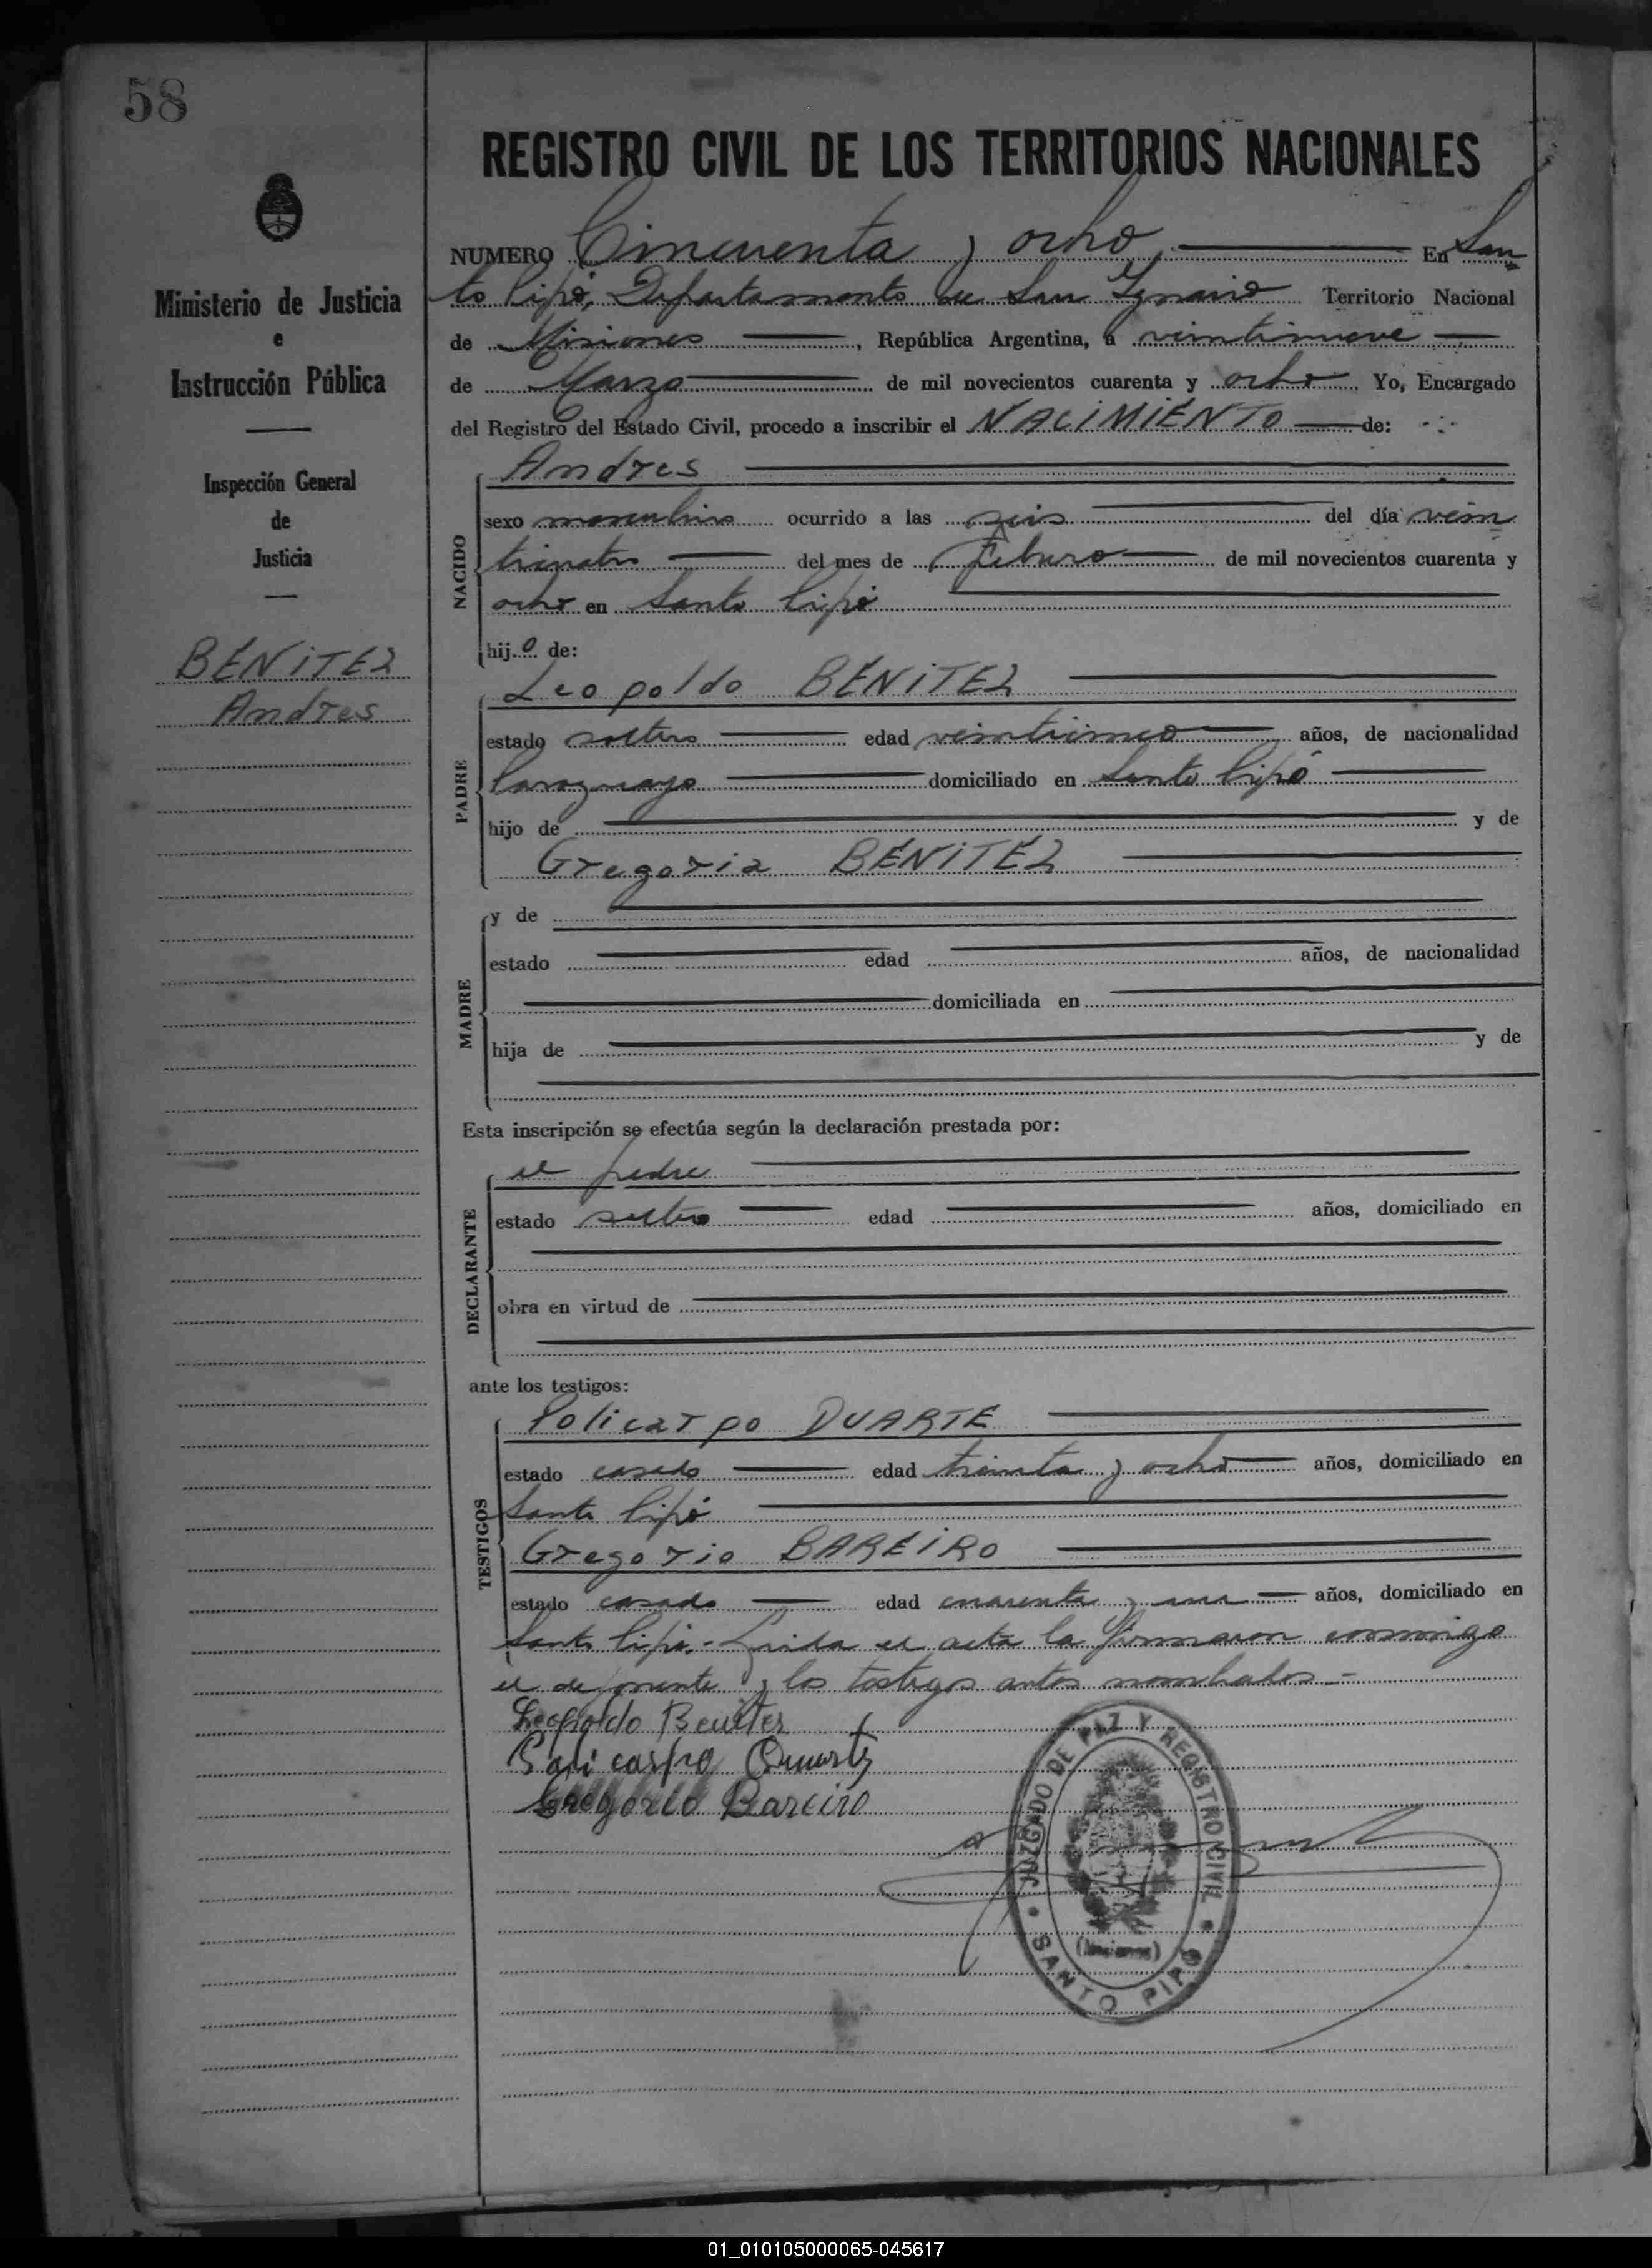 58
REGISTRO CIVIL DE LOS TERRITORIOS NACIONALES
NUMERO Cincuenta y ocho En San-
to Pipó, Departamento de San Ignacio Territorio Nacional
de Misiones, República Argentina, a veintinueve
de Marzo de mil novecientos cuarenta y ocho Yo, Encargado
del Registro del Estado Civil, procedo a inscribir el NACIMIENTO de:
Ministerio de Justicia
e
Instrucción Pública
Inspección General
de
Justicia
BENITEZ
Andres
NACIDO
Andres
sexo masculino ocurrido a las seis del día vein
ticuatro del mes de Febrero de mil novecientos cuarenta y
ocho en Santo Pipó
hijo de:
PADRE
Leopoldo BENITEZ
estado soltero edad veinticinco años, de nacionalidad
Paraguayo domiciliado en Santo Pipó
hijo de y de
Gregoria BENITEZ
MADRE
y de
estado edad años, de nacionalidad
domiciliada en
hija de y de
Esta inscripción se efectúa según la declaración prestada por:
DECLARANTE
el padre
estado soltero edad años, domiciliado en
obra en virtud de
ante los testigos:
TESTIGOS
Policarpo DUARTE
estado casado edad treinta y ocho años, domiciliado en
Santo Pipó
Gregorio BAREIRO
estado casado edad cuarenta y un años, domiciliado en
Santo Pipó.- Leida el acta la firmaron conmigo
el deponente y los testigos antes nombrados.=
Leopoldo Benites
Gregorio Bareiro
JUZGADO DE PAZ Y REGISTRO CIVIL
SANTO PIPÓ
(Misiones)
01_010105000065-045617